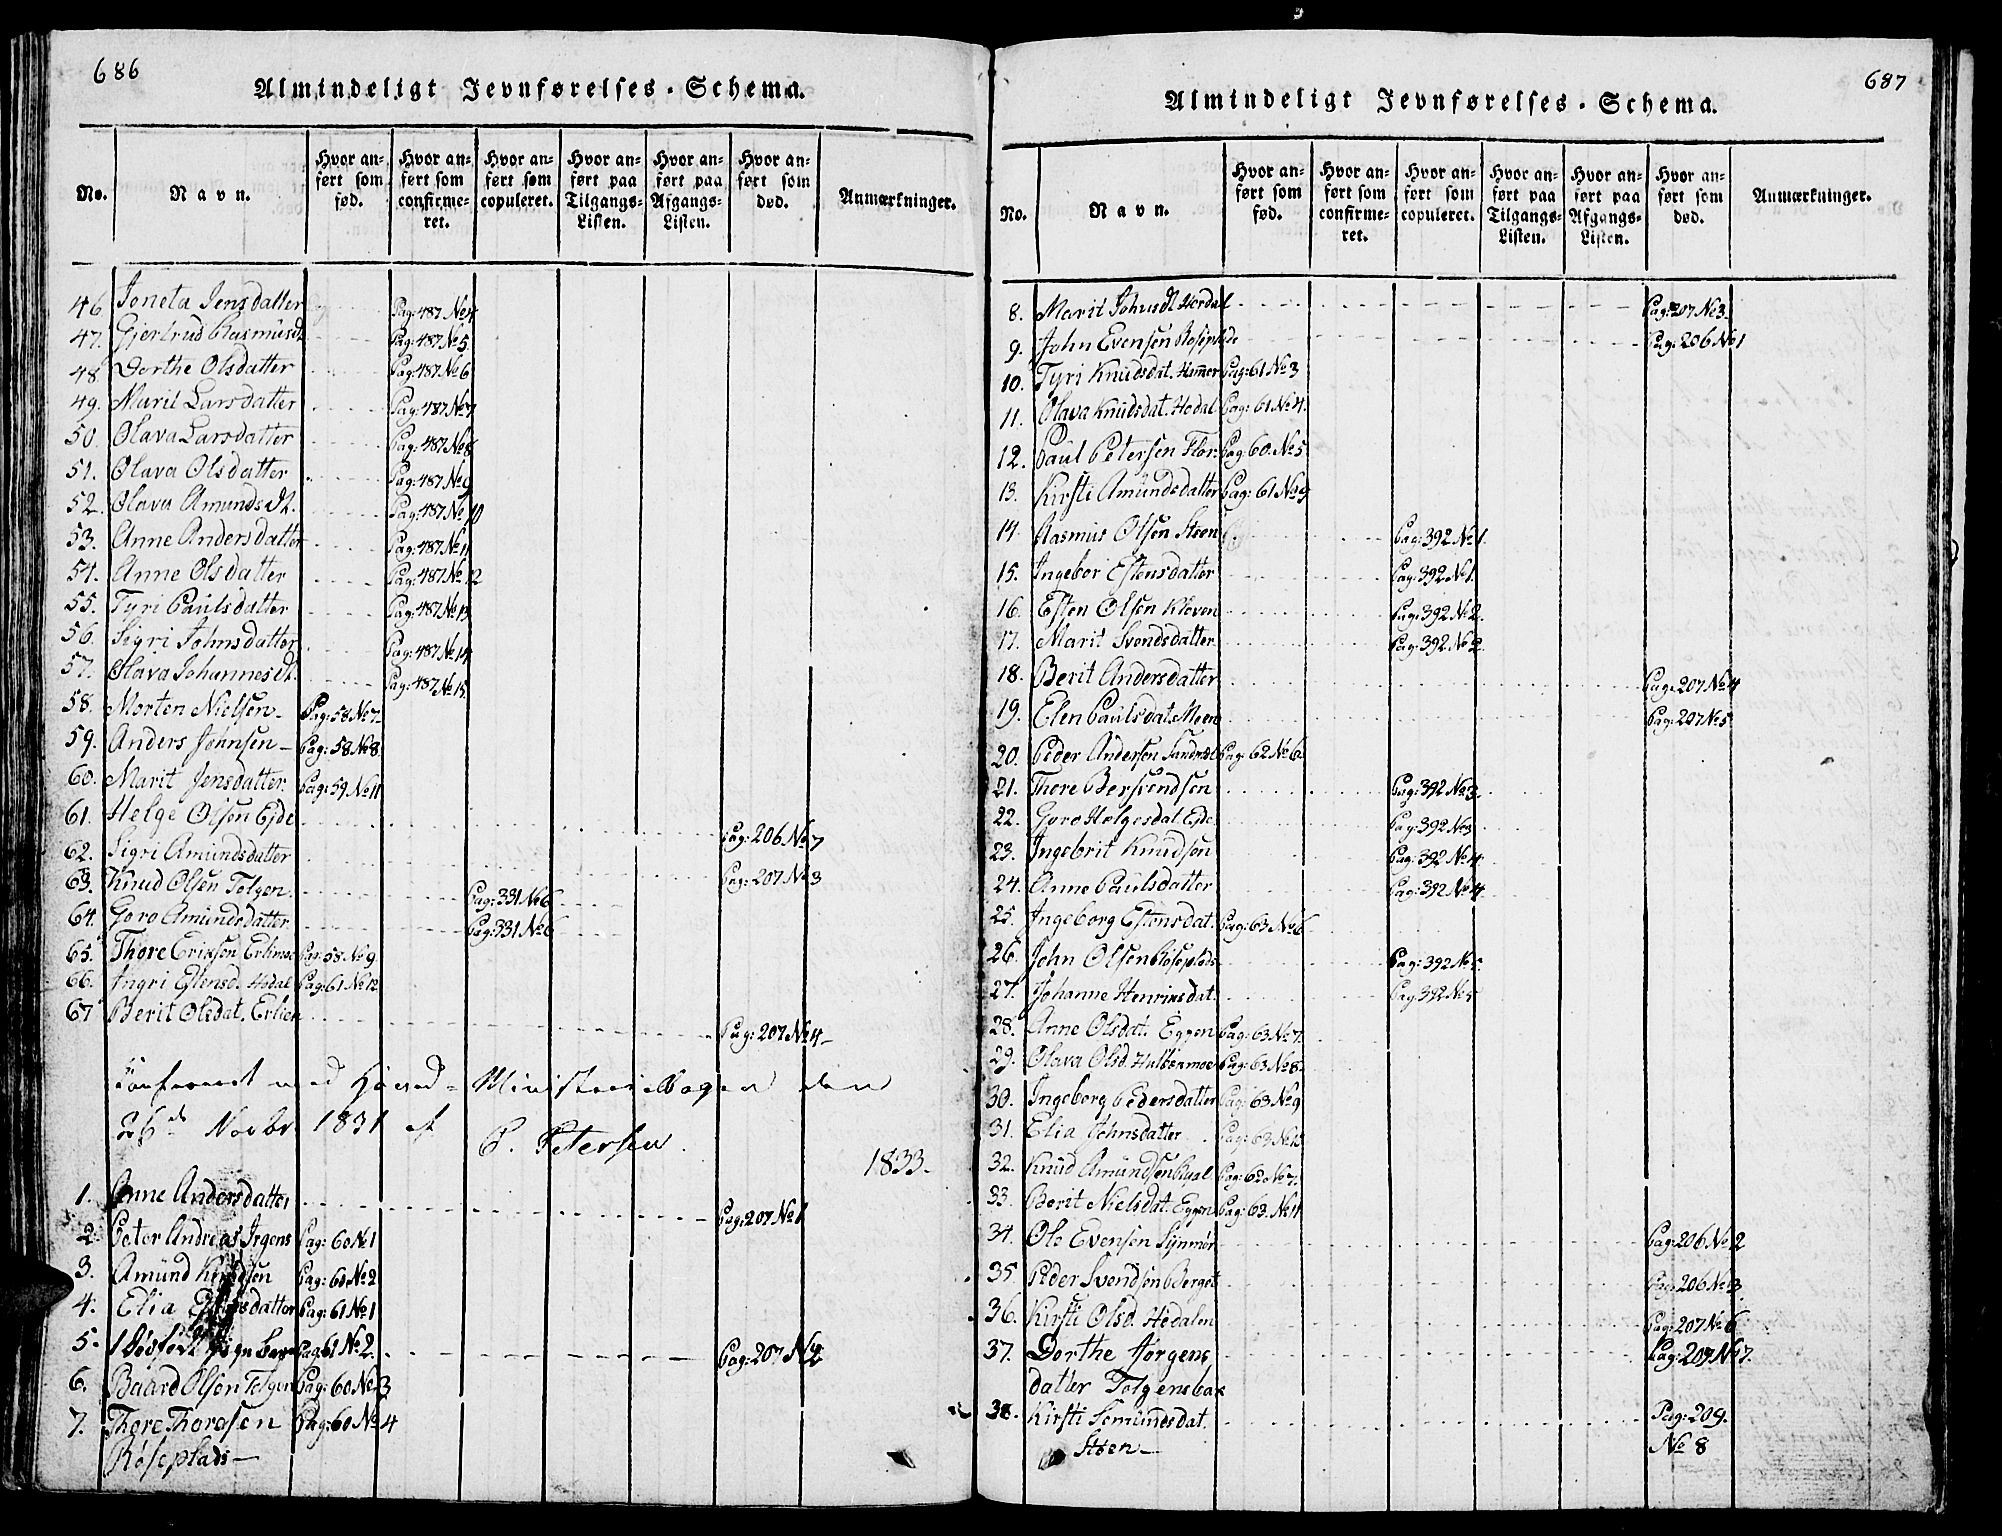 686
Almindeligt Jevnførelses-Schema.
No. Navn. Hvor anført som fød. Hvor anført som confirmeret. Hvor anført som copuleret. Hvor anført paa Tilgangs-Listen. Hvor anført paa Afgangs-Listen. Hvor anført som død. Anmærkninger.
46. Joneta Jensdatter Pag: 487 No 4
47. Gjertrud Rasmusdt. Pag: 487 No 5
48. Dorthe Olsdatter Pag: 487 No 6
49. Marit Larsdatter Pag: 487 No 7
50. Olava Larsdatter Pag: 487 No 8
51. Olava Olsdatter Pag: 487 No 9
52. Olava Amundsdt. Pag: 487 No 10
53. Anne Andersdatter Pag: 487 No 11
54. Anne Olsdatter Pag: 487 No 12
55. Tyri Paulsdatter Pag: 487 No 13
56. Sigri Johnsdatter Pag: 487 No 14
57. Olava Johannesdt. Pag: 487 No 15
58. Morten Nielsen Pag: 58 No 7
59. Anders Johnsen Pag: 58 No 8
60. Marit Jensdatter Pag: 59 No 11
61. Helge Olsen Ejde Pag: 206 No 7
62. Sigri Amundsdatter Pag: 207 No 3
63. Knud Olsen Tolgen Pag: 331 No 6
64. Goro Amundsdatter Pag: 331 No 6
65. Thore Eriksen Erlimoe Pag: 58 No 9
66. Ingri Estensd. Hodal Pag: 61 No 12
67 Berit Olsdat. Erlien Pag: 207 No 4
Confereret med Hoved-Ministerialbogen den
26de Novbr 1831 af P. Petersen.
1833.
1. Anne Andersdatter Pag: 207 No 1
2. Peter Andreas Irgens Pag: 60 No 1
3. Amund Knudsen Pag: 60 No 2
4. Elia datter Pag: 61 No 1
5. Pag: 61 No 2. Pag: 207 No 2
6. Baard Olsen Tolgen Pag: 60 No 3
7. Thore Thoresen Pag: 60 No 4
Røseplads
687
Almindeligt Jevnførelses-Schema.
No. Navn. Hvor anført som fød. Hvor anført som confirmeret. Hvor anført som copuleret. Hvor anført paa Tilgangs-Listen. Hvor anført paa Afgangs-Listen. Hvor anført som død. Anmærkninger.
8. Marit Johnsdt Hordal Pag: 207 No 3
9. John Evensen Røseplads Pag: 206 No 1
10. Tyri Knudsdat. Hamer Pag: 61 No 3
11. Olava Knudsdat. Hodal Pag: 61 No 4.
12. Paul Petersen Flor Pag: 60. No 5
13. Kirsti Amundsdatter Pag: 61 No 9
14. Rasmus Olsen Steen Pag: 392 No 1.
15. Ingebor Estensdatter Pag: 392 No 1.
16. Esten Olsen Kleven Pag: 392 No 2.
17. Marit Svendsdatter Pag: 392 No 2.
18. Berit Andersdatter Pag: 207 No 4
19. Elen Paulsdat. Moen Pag: 207 No 5
20. Peder Andersen Pag: 62 No 6
21. Thore Bersvendsen Pag: 392 No 3.
22. Goro Helgesdat. Ejde. Pag: 392 No 3
23. Ingebrit Knudsen Pag: 392 No 4.
24. Anne Paulsdatter Pag: 392 No 4
25. Ingeborg Estensdat. Pag: 63 No 6
26. John Olsen Røseplads Pag: 392 No 5.
27. Johanne Henriksdat. Pag 392 No 5
28. Anne Olsdat. Eggen Pag: 63 No 7.
29. Olava Olsd. Hulbekmoe Pag: 63 No 8.
30. Ingeborg Pedersdatter Pag: 63 No 9
31. Elia Johnsdatter Pag: 63 No 10
32. Knud Amundsen Pag: 62 No 7.
33. Berit Nielsdat. Eggen Pag: 63. No 11
34. Ole Evensen Synmør Pag: 206 No 2
35 Peder Svendsen Berget Pag: 206 No 3
36. Kirsti Olsd. Hedalen Pag: 207 No 6
37. Dorthe Jørgens Pag: 207 No 7.
datter Tolgensbak
38. Kirsti Semundsdat. Pag: 209.
Støen No 8